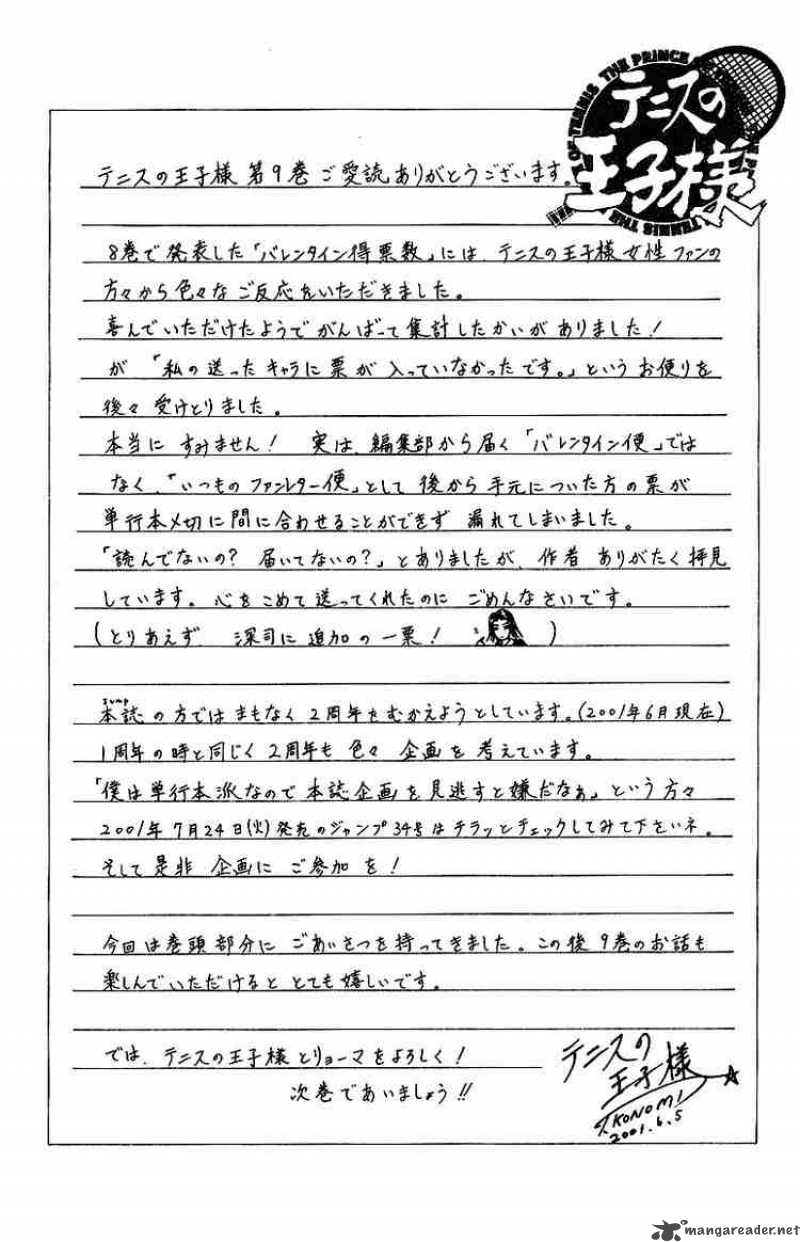 THE PRINCE OF TENNIS
テニスの
王子様
THE PRINCE OF TENNIS
テニスの王子様 第9巻 ご愛読ありがとうございます。
8巻で発表した「バレンタイン得票数」には、テニスの王子様女性ファンの
方々から色々なご反応をいただきました。
喜んでいただけたようでがんばって集計したかいがありました!
が「私の送ったキャラに票が入っていなかったです。」というお便りを
後々受けとりました。
本当に すみません! 実は、編集部から届く「バレンタイン便」では
なく、「いつものファンレター便」として後から手元についた方の票が
単行本〆切に間に合わせることができず 漏れてしまいました。
「読んでないの? 届いてないの?」とありましたが、作者 ありがたく拝見
しています。心をこめて送ってくれたのに ごめんなさいです。
(とりあえず 深司に追加の一票! )
jump
本誌の方ではまもなく2周年をむかえようとしています。(2001年6月現在)
1周年の時と同じく2周年も色々 企画を考えています。
「僕は単行本派なので本誌企画を見逃すと嫌だなぁ」という方々
2001年7月24日(火)発売のジャンプ34号はチラッとチェックしてみて下さいネ。
そして是非 企画に ご参加を!
今回は巻頭部分に ごあいさつを持ってきました。この後9巻のお話も
楽しんでいただけると とても嬉しいです。
では、テニスの王子様とリョーマをよろしく!
次巻であいましょう!!
テニスの
王子様
T.KONOMI
2001.6.5
mangareader.net